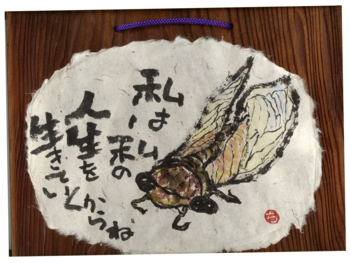 私は、私の
人生を
生きていくからね